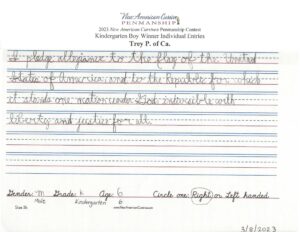 New American Cursive
PENMANSHIP
2023 New American Cursive Penmanship Contest
Kindergarten Boy Winner Individual Entries
Trey P. of Ca.
I pledge allegiance to the flag of the United
States of America and to the Republic for which
it stands one nation under God indivisible with
liberty and justice for all.
Gender: m Grade: k Age: 6 Circle one: Right or Left handed
Male Kindergarten 6
www.NewAmericanCursive.com
3/8/2023